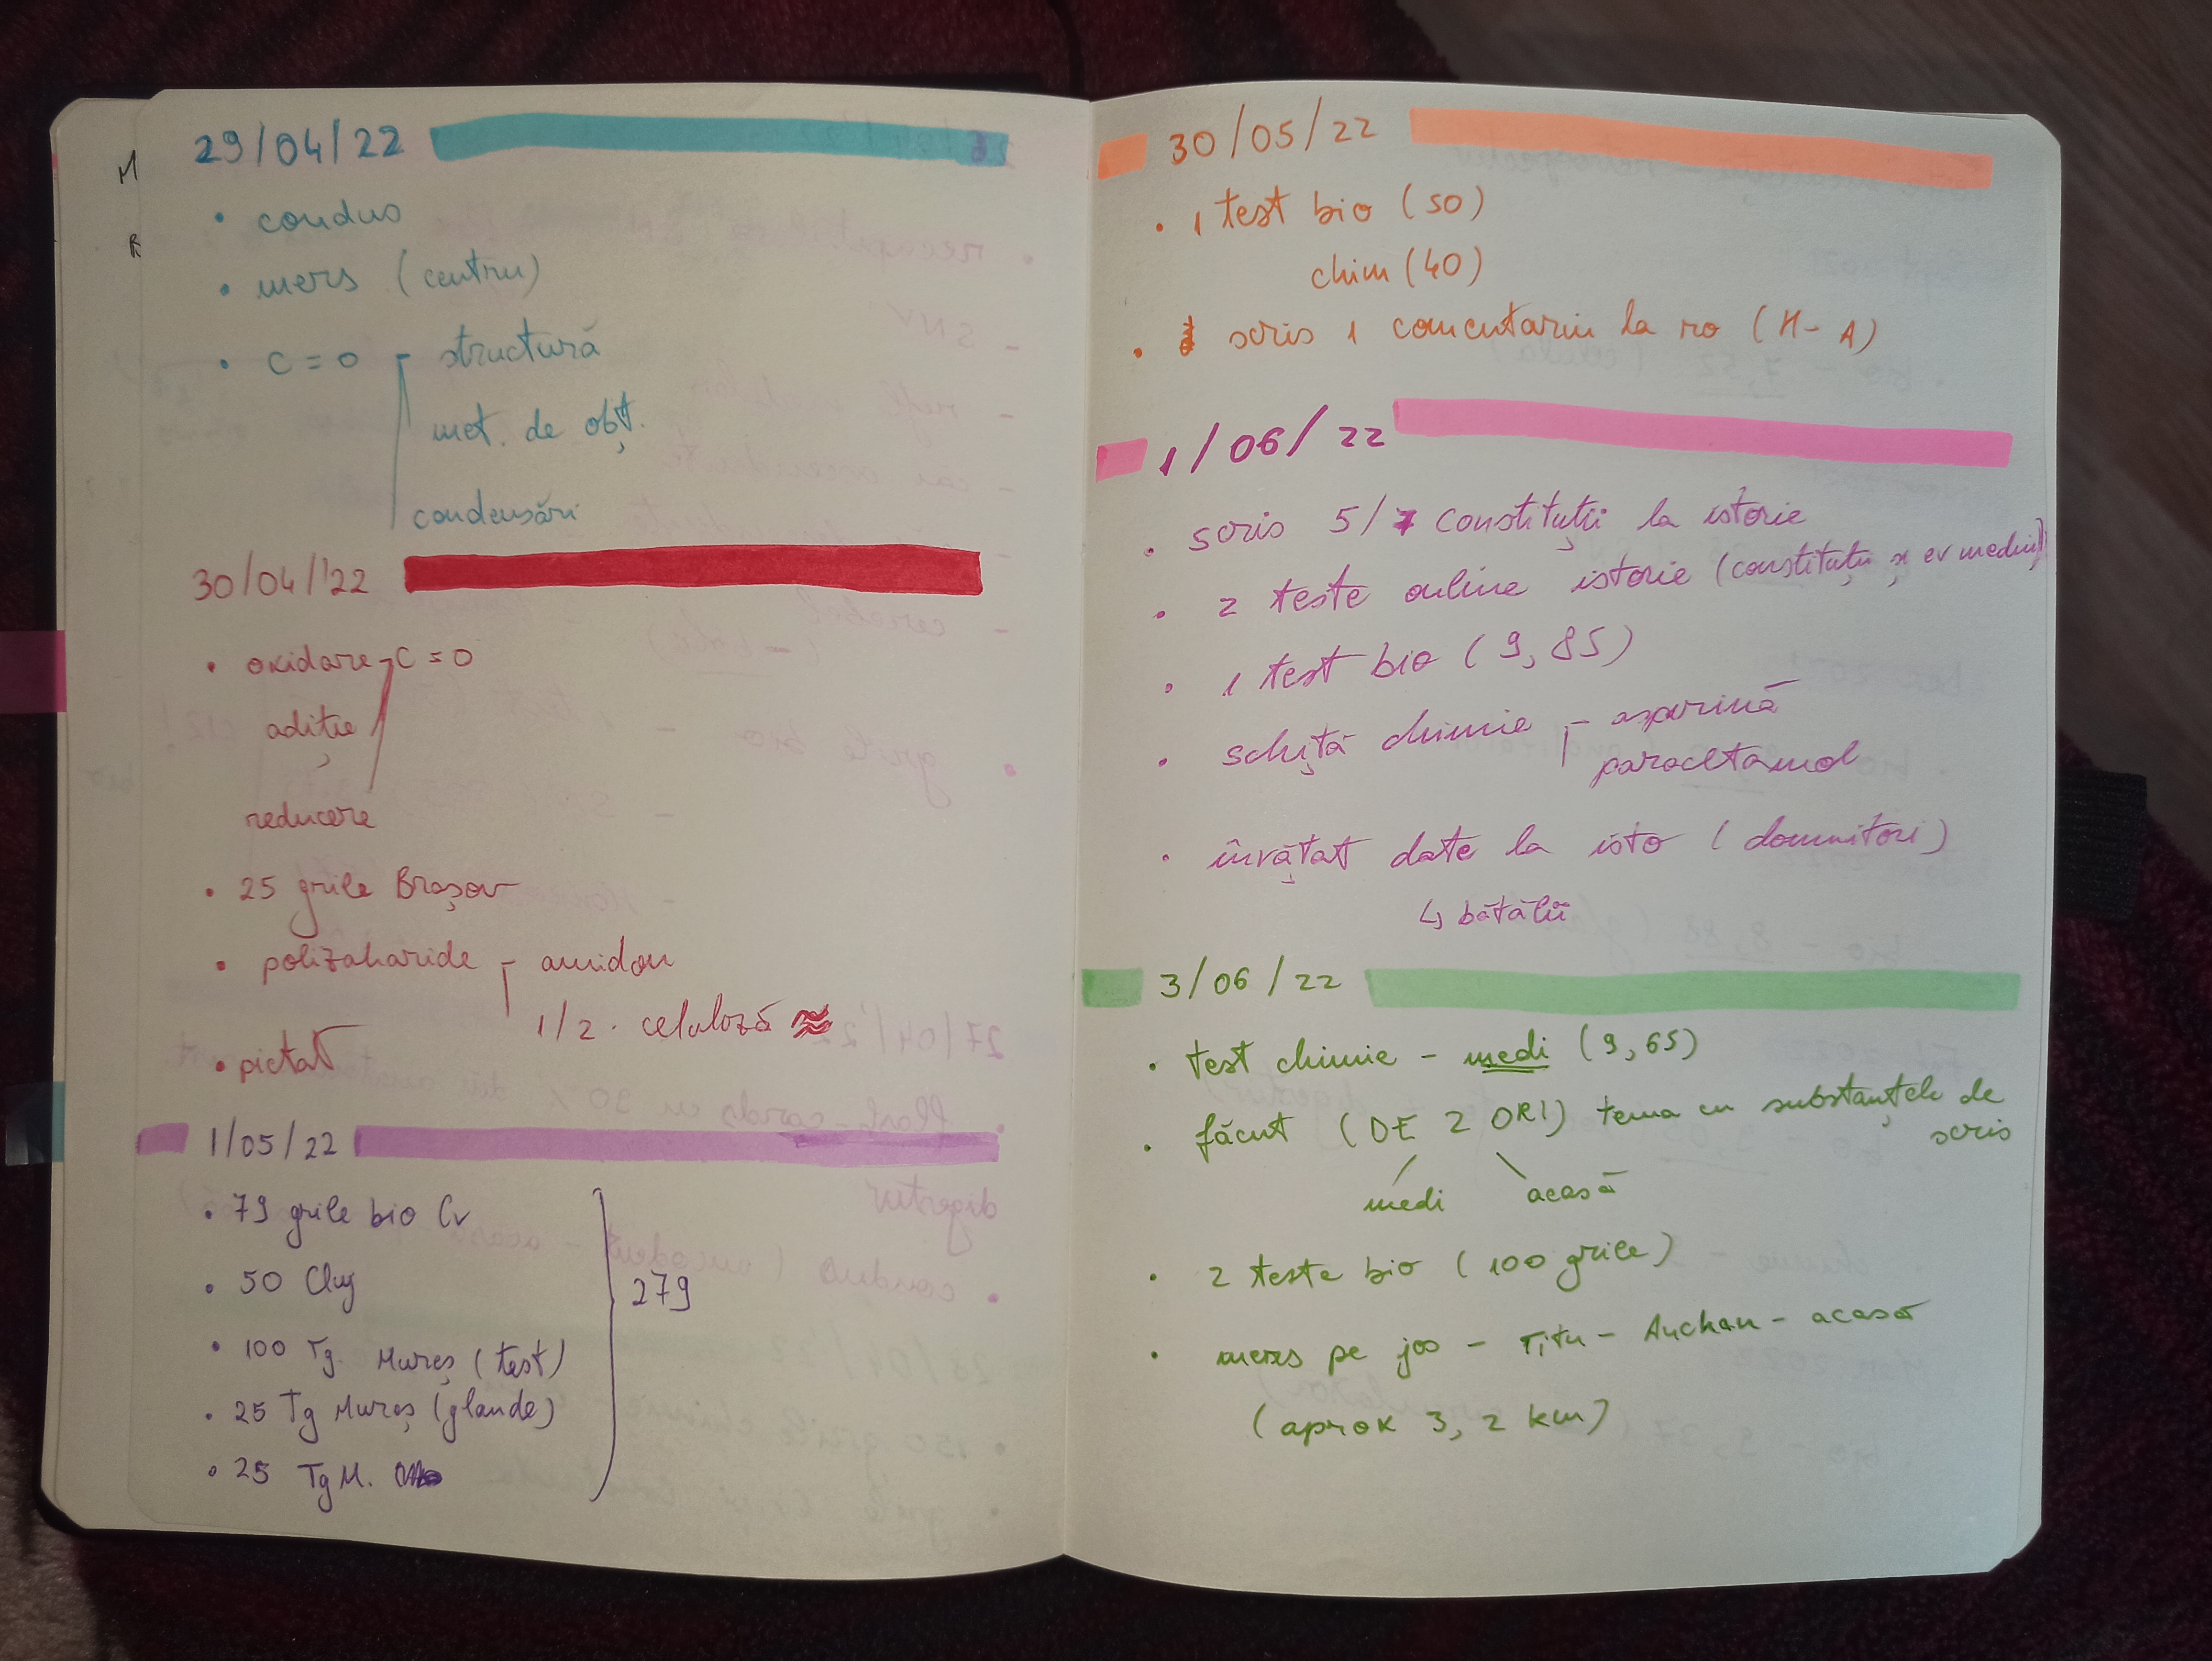 29/04/22
• condus
• mers (centru)
• C=O - structură
met. de obț.
condensări
30/04/'22
• oxidare - C=O
adiție
reducere
• 25 grile Brașov
• polizaharide - amidon
1/2. celuloză
• pictat
1/05/22
• 79 grile bio Cv
• 50 Cluj
• 100 Tg. Mureș (test)
• 25 Tg Mureș (glande)
• 25 Tg M.
279
30/05/22
• 1 test bio (50)
chim (40)
• scris 1 comentariu la ro (H-A)
1/06/22
• scris 5/7 constituții la istorie
• 2 teste online istorie (constituții și ev mediu)
• 1 test bio (9,85)
• schiță chimie - aspirină
paracetamol
• învățat date la isto (domnitori)
↳ bătălii
3/06/22
• test chimie - medi (9,65)
• făcut (DE 2 ORI) tema cu substanțele de
scris
medi acasă
• 2 teste bio (100 grile)
• mers pe jos - Titu - Auchan - acasă
(aprox 3,2 km)